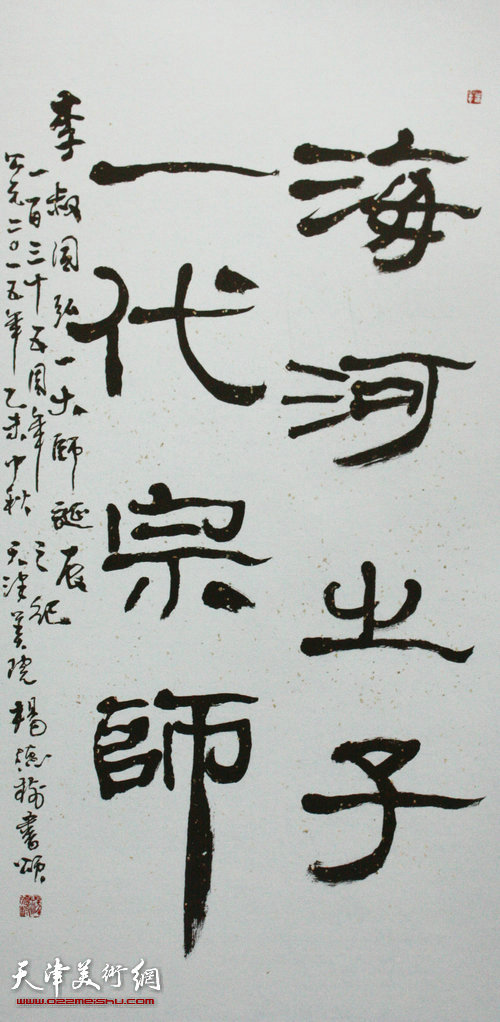 海河之子
一代宗師
李叔同弘一大師誕辰
一百三十五周年之纪
公元二〇一五年乙未中秋天津美院楊德榆書頌
天津美術網
www.022meishu.com